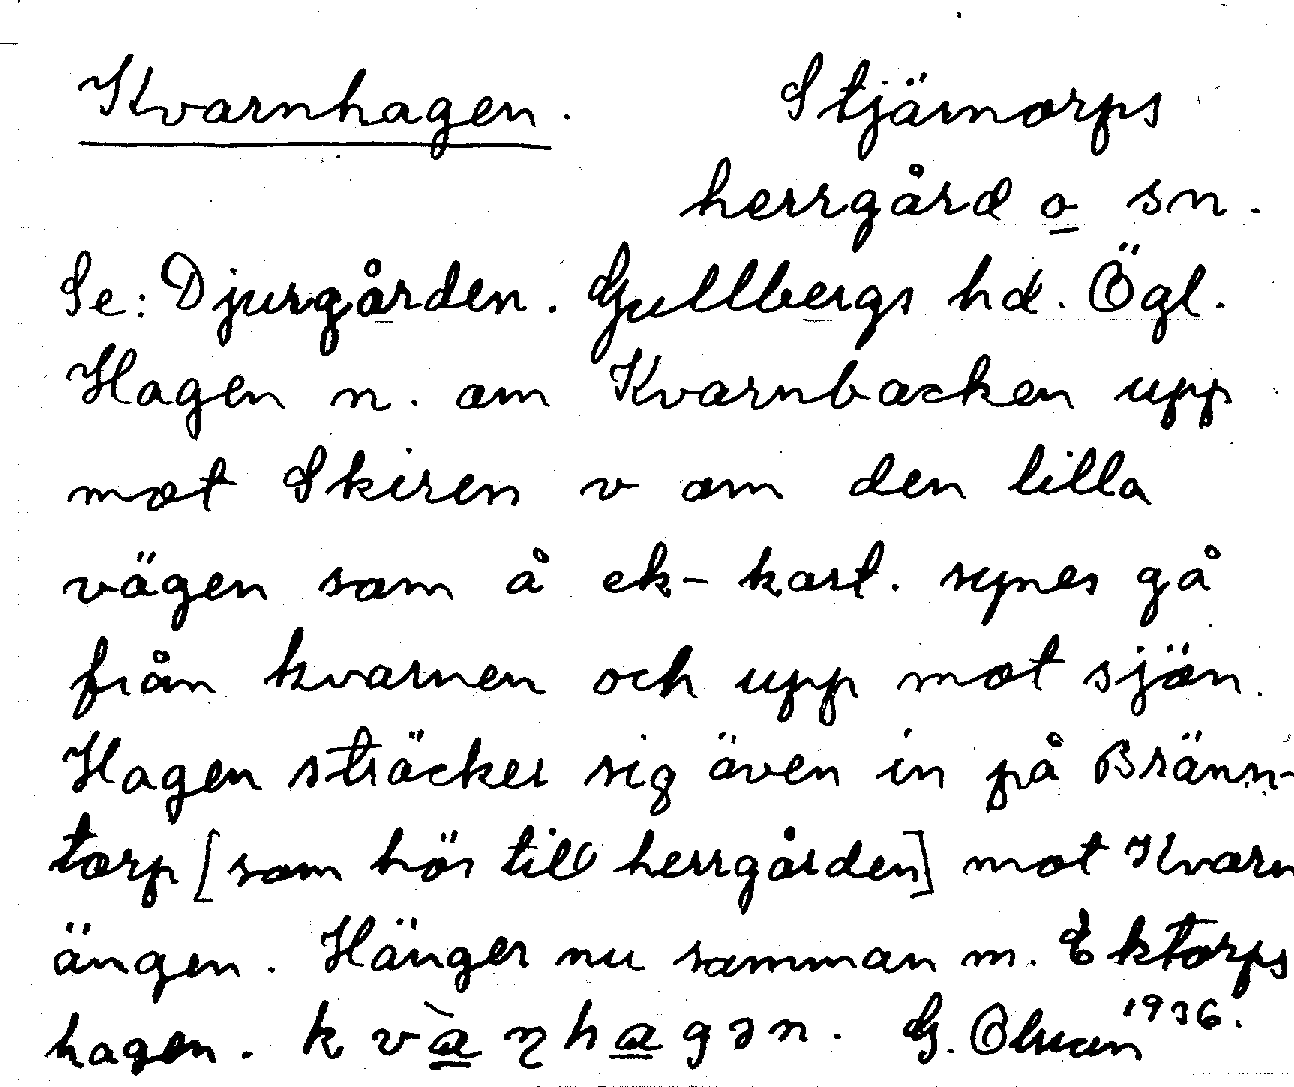 Kvarnhagen. Stjärnorps
herrgård o sn.
Se: Djurgården. Gullbergs hd. Ögl.
Hagen n. om Kvarnbacken upp
mot Skiren v om den lilla
vägen som å ek-kart. synes gå
från kvarnen och upp mot sjön.
Hagen sträcker sig även in på Bränn-
torp [som hör till herrgården] mot Kvarn
ängen. Hänger nu samman m. Ektorps
hagen. kvàɳhagən. G. Olson 1936.